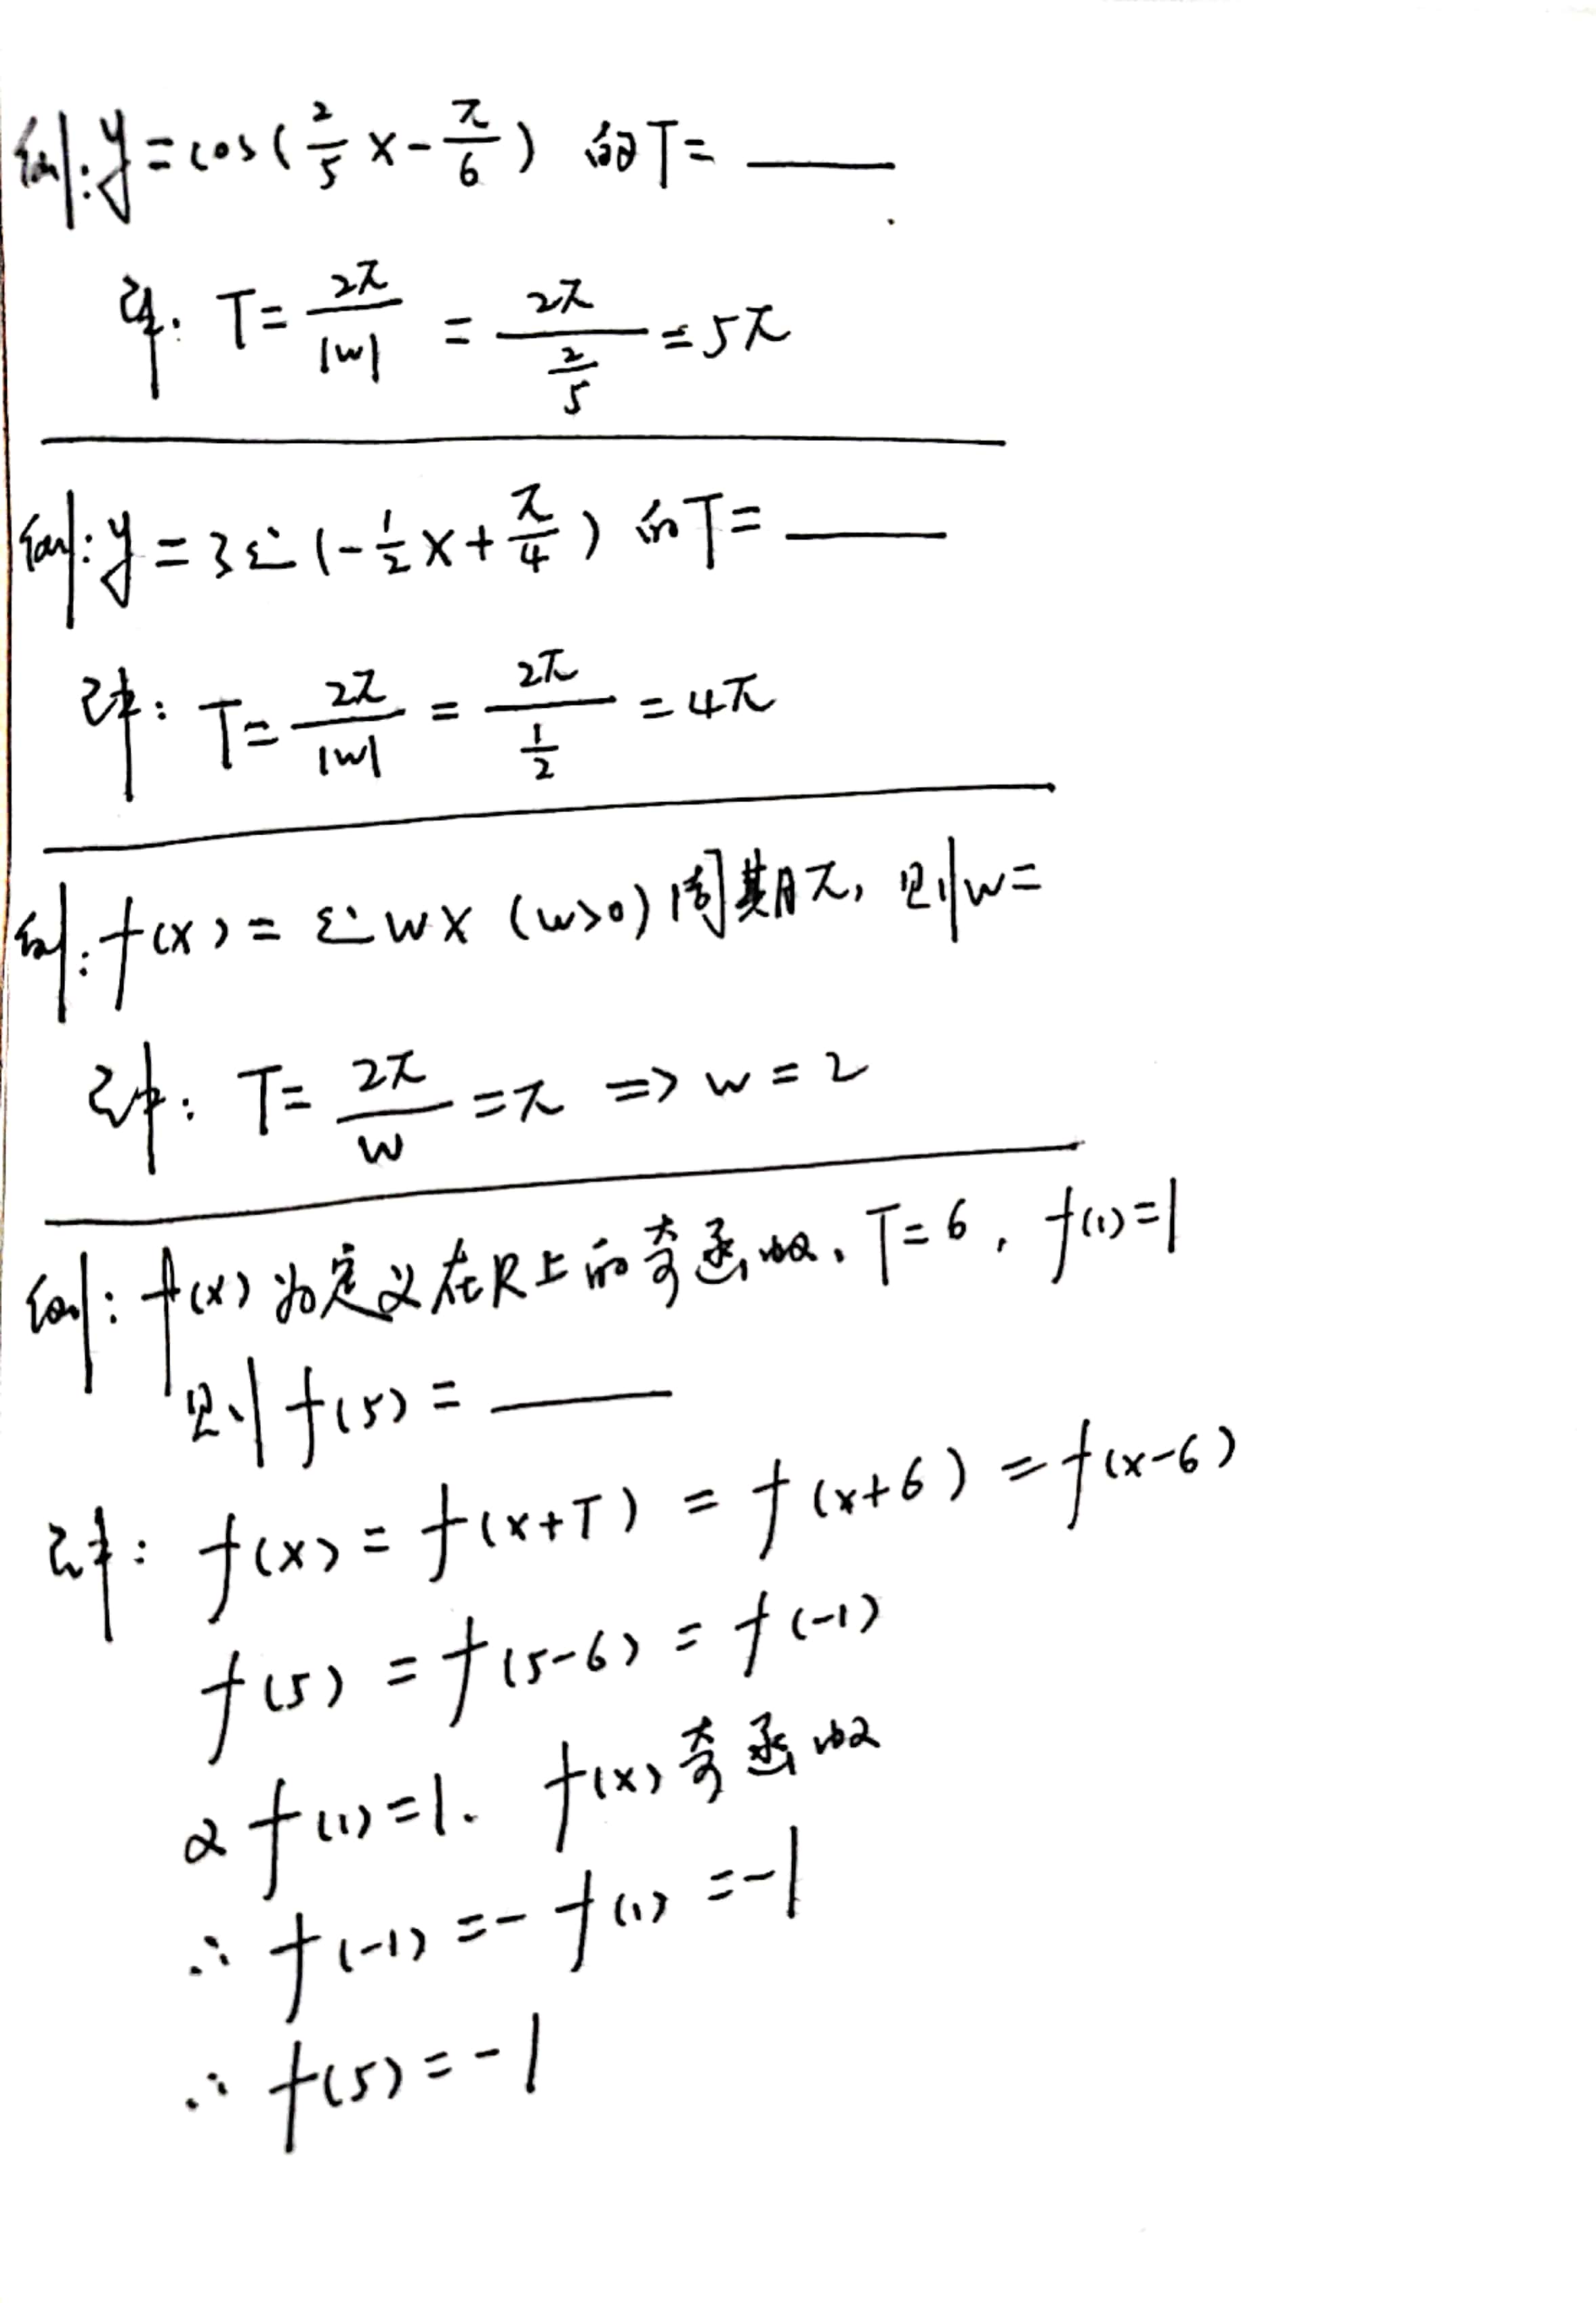 例:y=cos(2/5 x-π/6) 的T= ____.
详: T=2π/|w| = 2π/(2/5) =5π
例:y=3sin(-1/2 x+π/4) 的T= ____
详: T=2π/|w| = 2π/(1/2) =4π
例:f(x)= sin wx (w>0) 周期π, 则w=
详: T=2π/w =π => w=2
例: f(x)为定义在R上的奇函数、T=6, f(1)=1
则 f(5)= ____
详: f(x)=f(x+T)=f(x+6)=f(x-6)
f(5)=f(5-6)=f(-1)
又 f(1)=1、 f(x)奇函数
∴ f(-1)=-f(1)=-1
∴ f(5)=-1